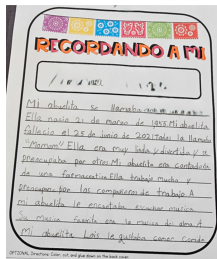 RECORDANDO A MI
Mi abuelita se llamaba
Ella nacio 21 de marzo de 1955 Mi abuelita
fallacio el 25 de Junio de 2021 Todos la llamaba
"Mamom" Ella era muy linda y divertida y
preocupaba por otros Mi abuelita era contadora
de una farmaceutica Ella trabajo mucho y
preocupaba por los companeros de trabajo A
mi abuelita le encantaba escuchar musica
Su musica favorita era la musica de alma A
Mi abuelita Lois le gustaba comer Conde
OPTIONAL Directions: Color, cut, and glue down on the book cover.